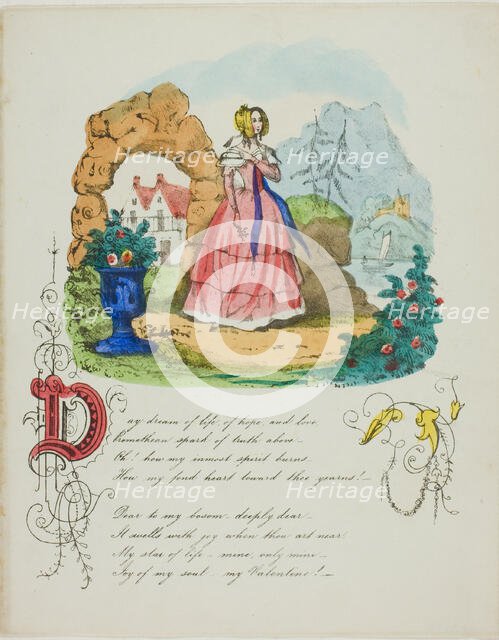 Day dream of life, of hope, and love,
Promethean spark of truth above_
Oh! how my inmost spirit burns_
How my fond heart toward thee yearns!_
Dear to my bosom_ deeply dear_
It swells with joy when thou art near
My star of life_ mine, only mine_
Joy of my soul_ my Valentine!_
Heritage Heritage
Heritage Heritage
Heritage Heritage
Heritage Heritage
Heritage Heritage
Heritage Heritage
C